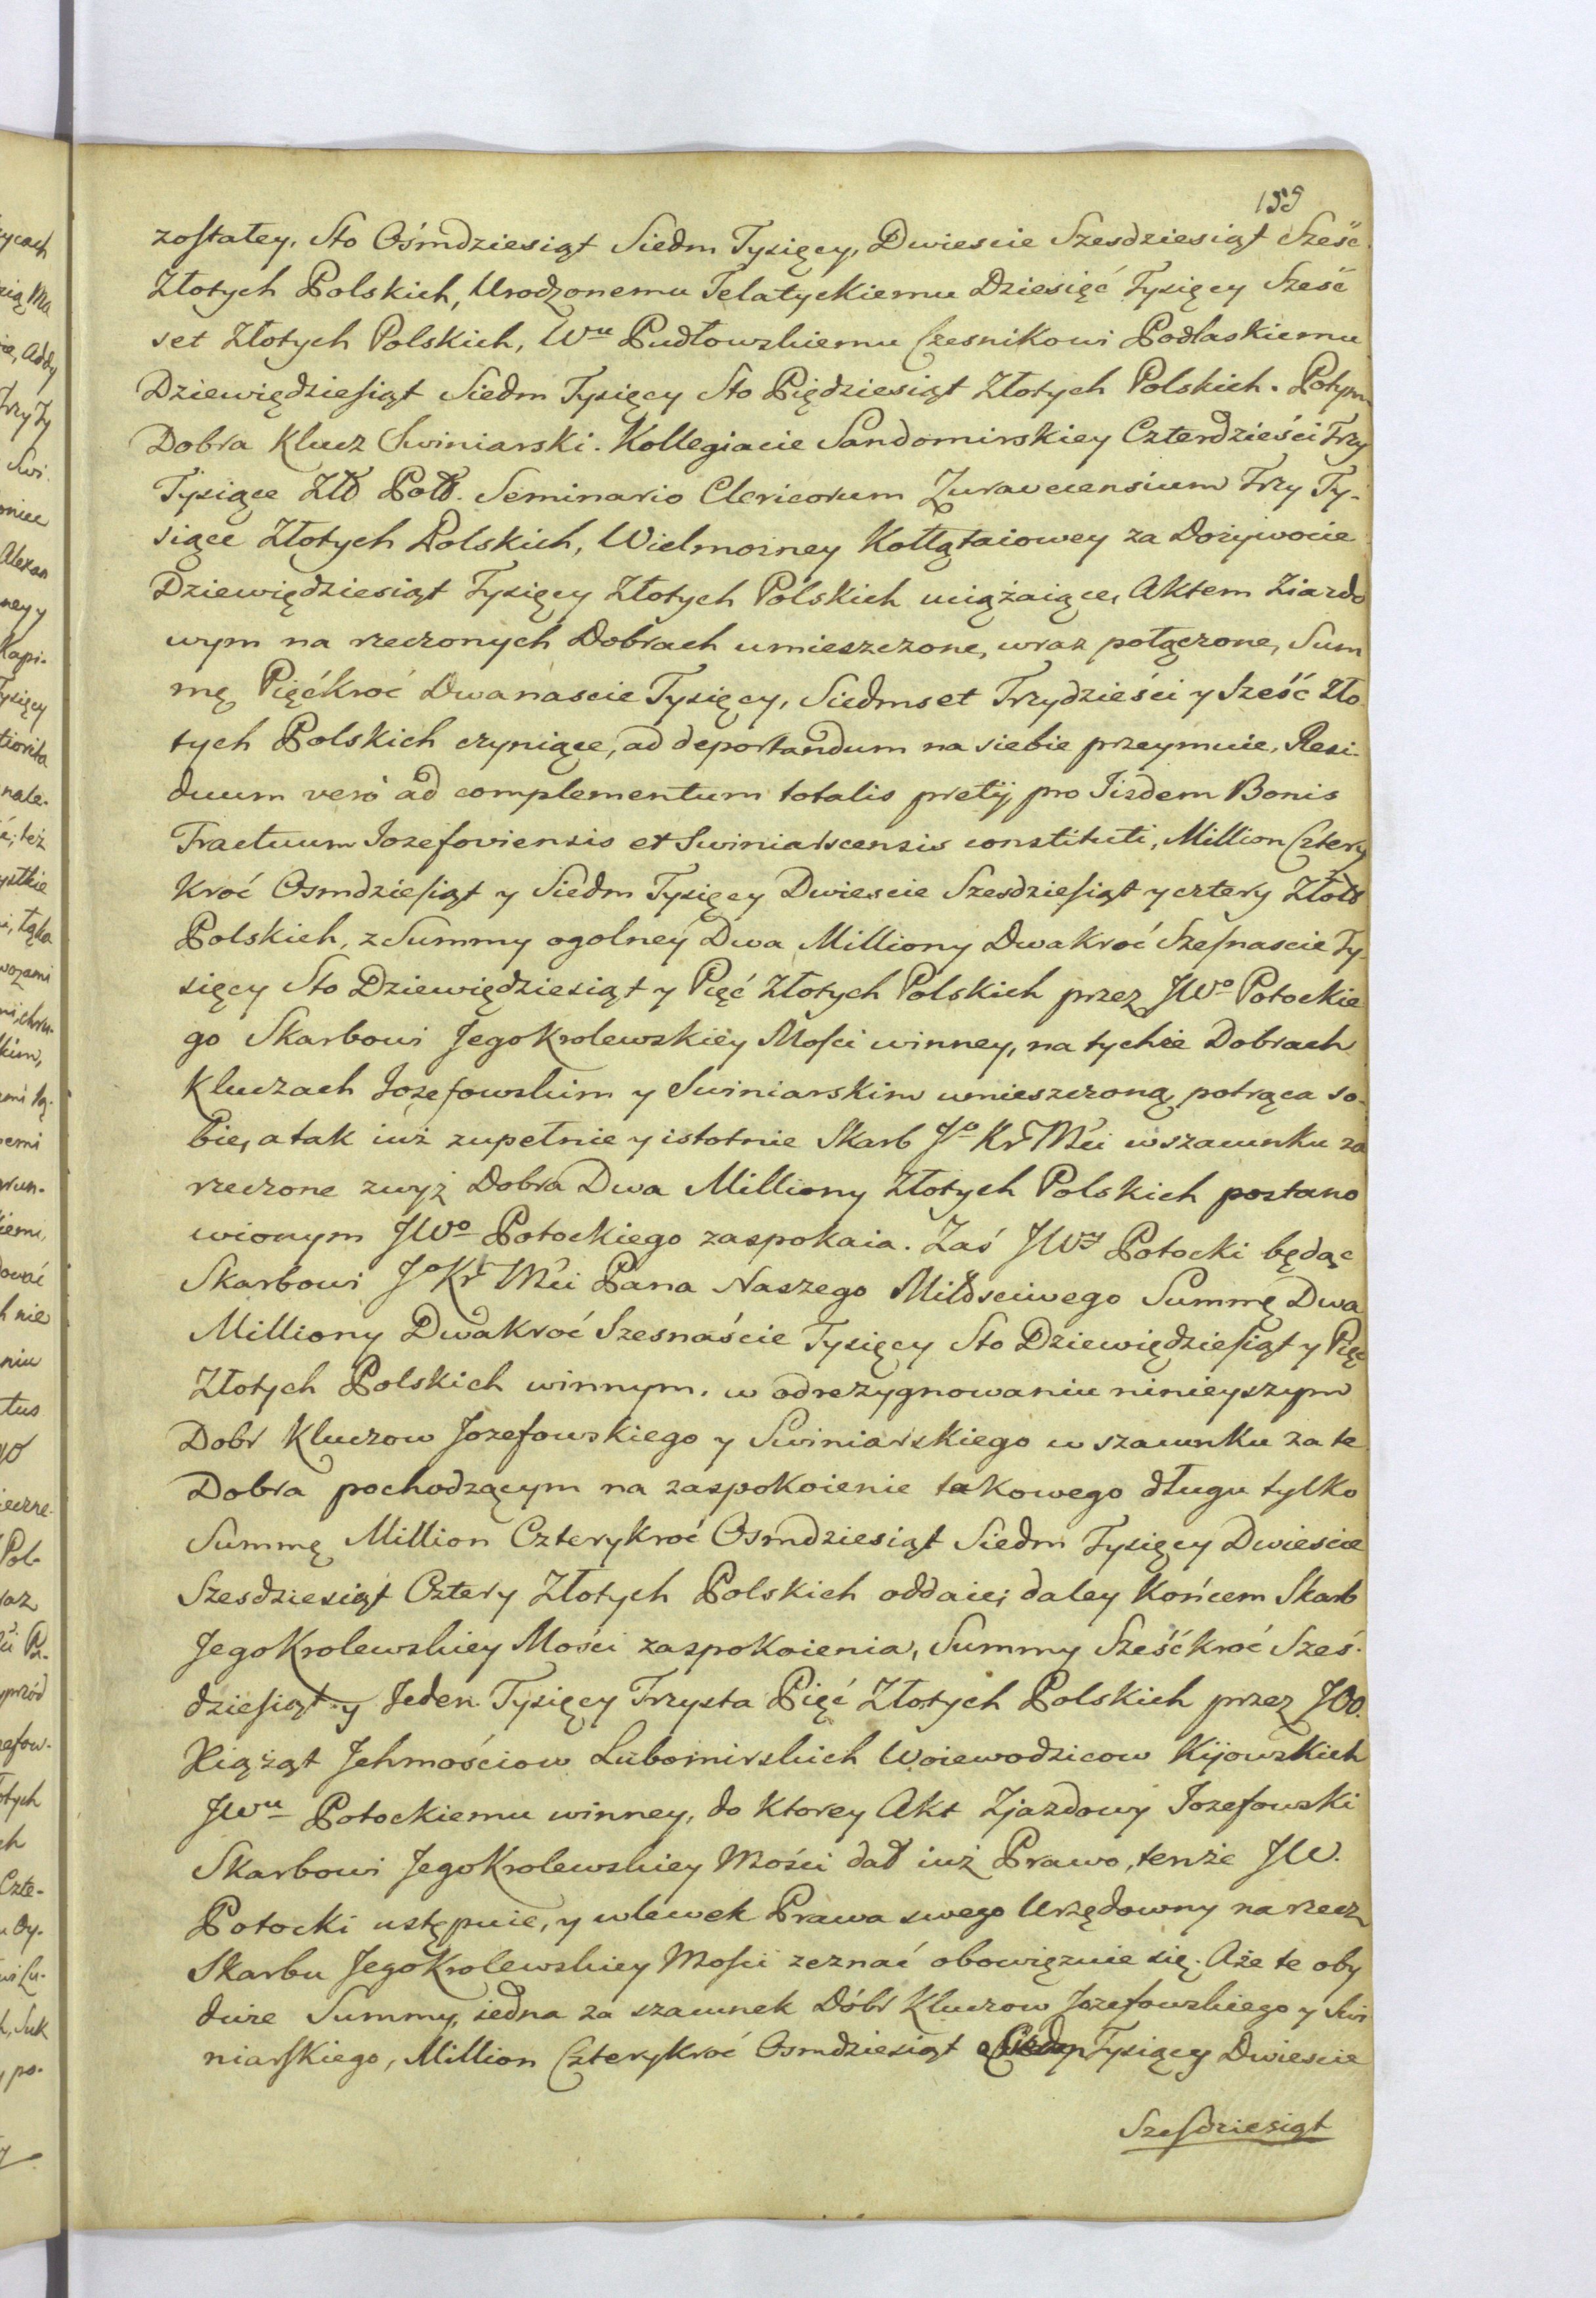 159
zostałey, Sto Ośmdziesiąt Siedm Tysięcy, Dwiescie Szesdziesiąt Sześć
Złotych Polskich, Urodzonemu Telatyckiemu Dziesięć Tysięcy Sześć
set Złotych Polskich, Wu Pudłowskiemu Czesnikowi Podlaskiemu
Dziewiędziesiąt Siedm Tysięcy Sto Piędziesiąt Złotych Polskich. Potym
Dobra Klucz Swiniarski. Kollegiacie Sandomirskiey Czterdzieści Trzy
Tysiące Złł Poll. Seminario Clericorum Zuravecensium Trzy Ty-
siące Złotych Polskich, Wielmozney Kołłątaiowey za Dozywocie
Dziewiędziesiąt Tysięcy Złotych Polskich uciążaiące, Aktem Ziazdo
wym na rzeczonych Dobrach umieszczone, wraz połączone, Sum
mę Pięćkroć Dwanascie Tysięcy, Siedmset Trzydzieści y Sześć Zło
tych Polskich czyniące, ad deportandum na siebie przeymuie, Resi-
duum verò ad complementum totalis pretij, pro Iisdem Bonis
Tractuum Jozefoviensis et Swiniarscensis constituti, Million Cztery
Kroć Osmdziesiąt y Siedm Tysięcy Dwiescie Szesdziesiąt y cztery Złott
Polskich, z Summy ogolney Dwa Milliony Dwakroć Szesnascie Ty-
sięcy Sto Dziewiędziesiąt y Pięć Złotych Polskich przez JWo Potockie
go Skarbowi Jego Krolewskiey Mości winney, na tychże Dobrach
Kluczach Jozefowskim y Swiniarskim umieszczoną, potrąca so-
bie, a tak iuż zupełnie y istotnie Skarb Jo Kr Mci w szacunku za
rzeczone zwyż Dobra Dwa Milliony Złotych Polskich postano
wionym JWo Potockiego zaspokaia. Zaś JWy Potocki będąc
Skarbowi Jo Kr Mci Pana Naszego Miłościwego Summę Dwa
Milliony Dwakroć Szesnaście Tysięcy Sto Dziewiędziesiąt y Pięć
Złotych Polskich winnym, w odrezygnowaniu ninieyszym
Dobr Kluczow Jozefowskiego y Swiniarskiego w szacunku za te
Dobra pochodzącym na zaspokoienie takowego długu tylko
Summę Million Czterykroć Osmdziesiąt Siedm Tysięcy Dwiescie
Szesdziesiąt Cztery Złotych Polskich oddaie; daley Końcem Skarb
Jego Krolewskiey Mości zaspokoienia, Summy Sześćkroć Sześ-
dziesiąt y Jeden Tysięcy Trzysta Pięć Złotych Polskich przez JOO.
Xiążąt Jchmościow Lubomirskich Woiewodzicow Kijowskich
JWu Potockiemu winney, do Ktorey Akt Zjazdowy Jozefowski
Skarbowi Jego Krolewskiey Mości dał iuż Prawo, tenże JW.
Potocki ustępuie, y wlewek Prawa swego Urzędowny na rzecz
Skarbu Jego Krolewskiey Mości zeznać obowięzuie się. Aże te oby
dwie Summy, iedna za szacunek Dóbr Kluczow Jozefowskiego y Swi
niarskiego, Million Czterykroć Osmdziesiąt Siedm Tysięcy Dwiescie
Szesdziesiąt